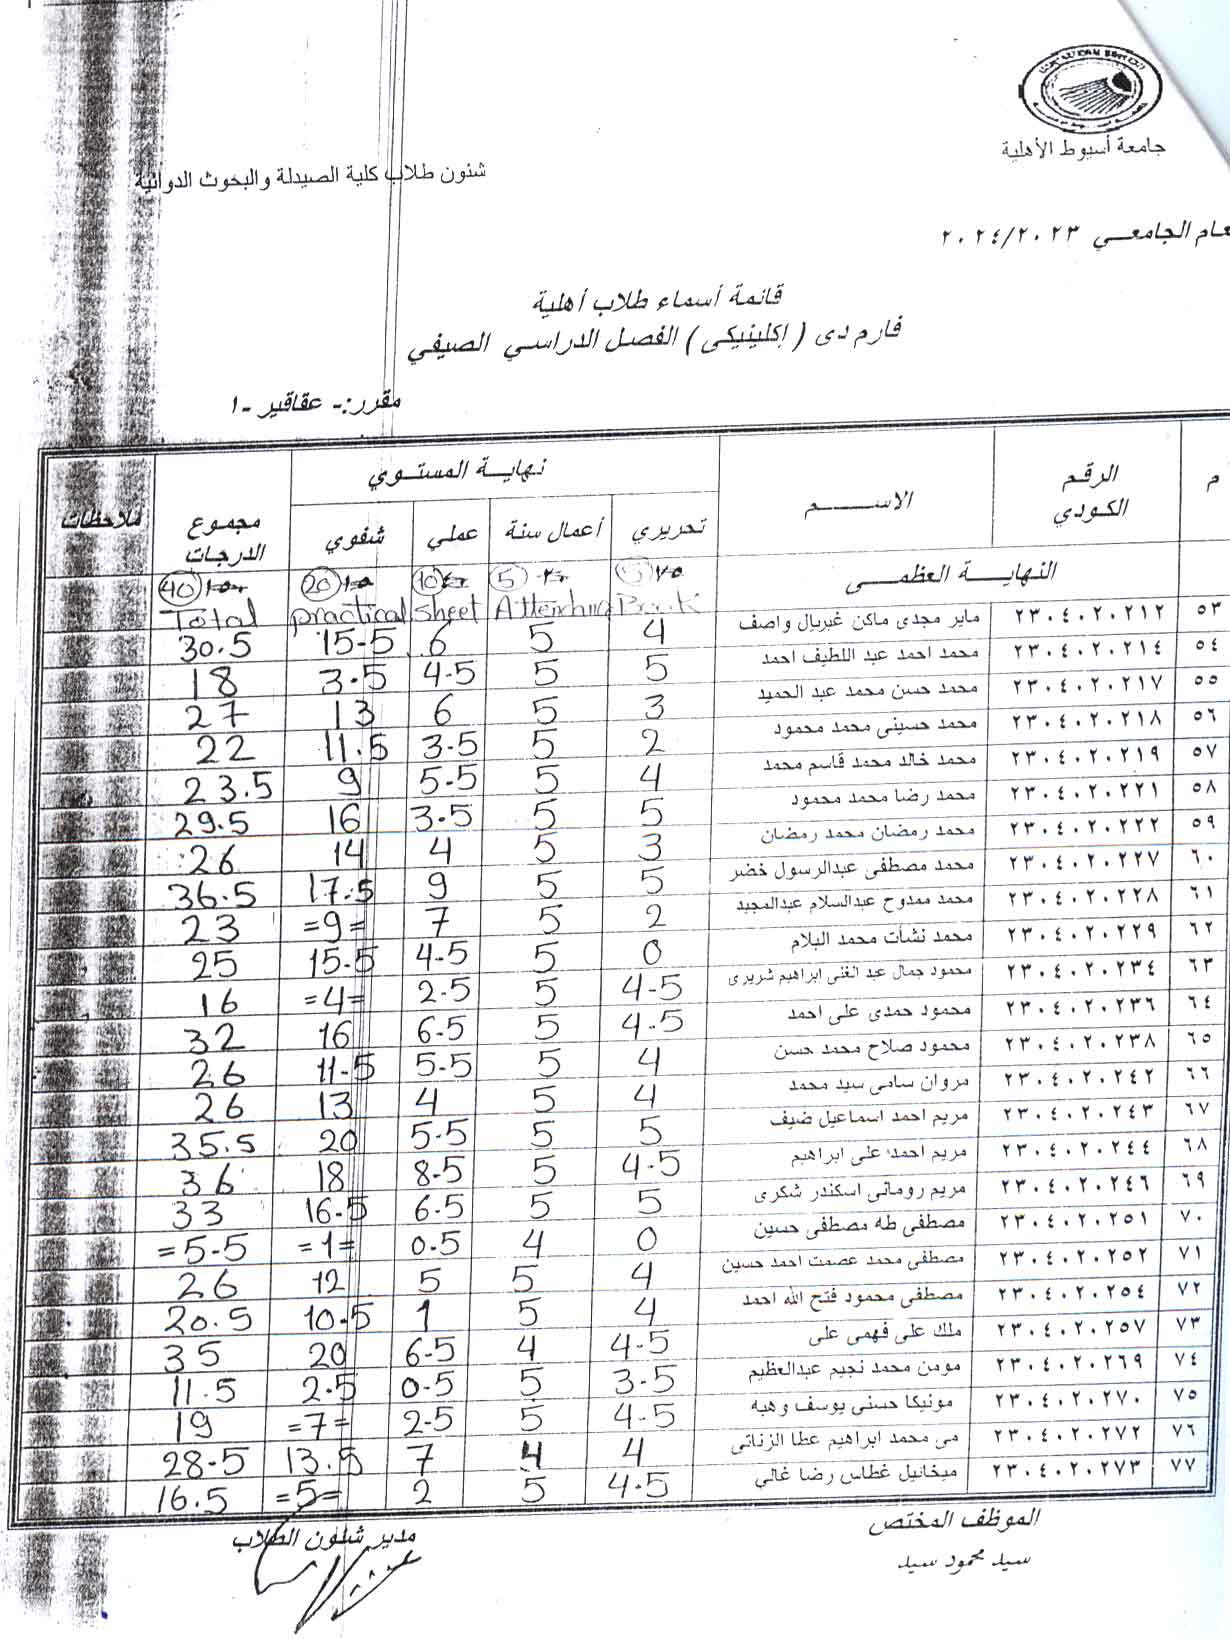 جامعة أسيوط الأهلية
شئون طلاب كلية الصيدلة والبحوث الدوائية
عام الجامعي ٢٠٢٤/٢٠٢٣
قائمة أسماء طلاب أهلية
فارم دى (إكلينيكى) الفصل الدراسي الصيفي
مقرر:- عقاقير -١
م الرقم الكودي الاســـم نهاية المستوي مجموع الدرجات ملاحظات
تحريري أعمال سنة عملي شفوي
النهاية العظمى 5 10 20 40
Book Attending Sheet practical Total
٥٣ ٢٣٠٤٠٢٠٢١٢ ماير مجدى ماكن غبريال واصف 4 5 6 15.5 30.5
٥٤ ٢٣٠٤٠٢٠٢١٤ محمد احمد عبد اللطيف احمد 5 5 4.5 3.5 18
٥٥ ٢٣٠٤٠٢٠٢١٧ محمد حسن محمد عبد الحميد 3 5 6 13 27
٥٦ ٢٣٠٤٠٢٠٢١٨ محمد حسينى محمد محمود 2 5 3.5 11.5 22
٥٧ ٢٣٠٤٠٢٠٢١٩ محمد خالد محمد قاسم محمد 4 5 5.5 9 23.5
٥٨ ٢٣٠٤٠٢٠٢٢١ محمد رضا محمد محمود 5 5 3.5 16 29.5
٥٩ ٢٣٠٤٠٢٠٢٢٢ محمد رمضان محمد رمضان 3 5 4 14 26
٦٠ ٢٣٠٤٠٢٠٢٢٧ محمد مصطفى عبدالرسول خضر 5 5 9 17.5 36.5
٦١ ٢٣٠٤٠٢٠٢٢٨ محمد ممدوح عبدالسلام عبدالمجيد 2 5 7 =9= 23
٦٢ ٢٣٠٤٠٢٠٢٢٩ محمد نشأت محمد البلام 0 5 4.5 15.5 25
٦٣ ٢٣٠٤٠٢٠٢٣٤ محمود جمال عبد الغنى ابراهيم شريرى 4.5 5 2.5 =4= 16
٦٤ ٢٣٠٤٠٢٠٢٣٦ محمود حمدى على احمد 4.5 5 6.5 16 32
٦٥ ٢٣٠٤٠٢٠٢٣٨ محمود صلاح محمد حسن 4 5 5.5 11.5 26
٦٦ ٢٣٠٤٠٢٠٢٤٢ مروان سامى سيد محمد 4 5 4 13 26
٦٧ ٢٣٠٤٠٢٠٢٤٣ مريم احمد اسماعيل ضيف 5 5 5.5 20 35.5
٦٨ ٢٣٠٤٠٢٠٢٤٤ مريم احمد على ابراهيم 4.5 5 8.5 18 36
٦٩ ٢٣٠٤٠٢٠٢٤٦ مريم رومانى اسكندر شكرى 5 5 6.5 16.5 33
٧٠ ٢٣٠٤٠٢٠٢٥١ مصطفى طه مصطفى حسين 0 4 0.5 =1= =5.5
٧١ ٢٣٠٤٠٢٠٢٥٢ مصطفى محمد عصمت احمد حسين 4 5 5 12 26
٧٢ ٢٣٠٤٠٢٠٢٥٤ مصطفى محمود فتح الله احمد 4 5 1 10.5 20.5
٧٣ ٢٣٠٤٠٢٠٢٥٧ ملك على فهمى على 4.5 4 6.5 20 35
٧٤ ٢٣٠٤٠٢٠٢٦٩ مومن محمد نجيم عبدالعظيم 3.5 5 0.5 2.5 11.5
٧٥ ٢٣٠٤٠٢٠٢٧٠ مونيكا حسنى يوسف وهبه 4.5 5 2.5 =7= 19
٧٦ ٢٣٠٤٠٢٠٢٧٢ مى محمد ابراهيم عطا الزناتى 4 4 7 13.5 28.5
٧٧ ٢٣٠٤٠٢٠٢٧٣ ميخائيل غطاس رضا غالي 4.5 5 2 =5= 16.5
الموظف المختص مدير شئون الطلاب
سيد محمود سيد